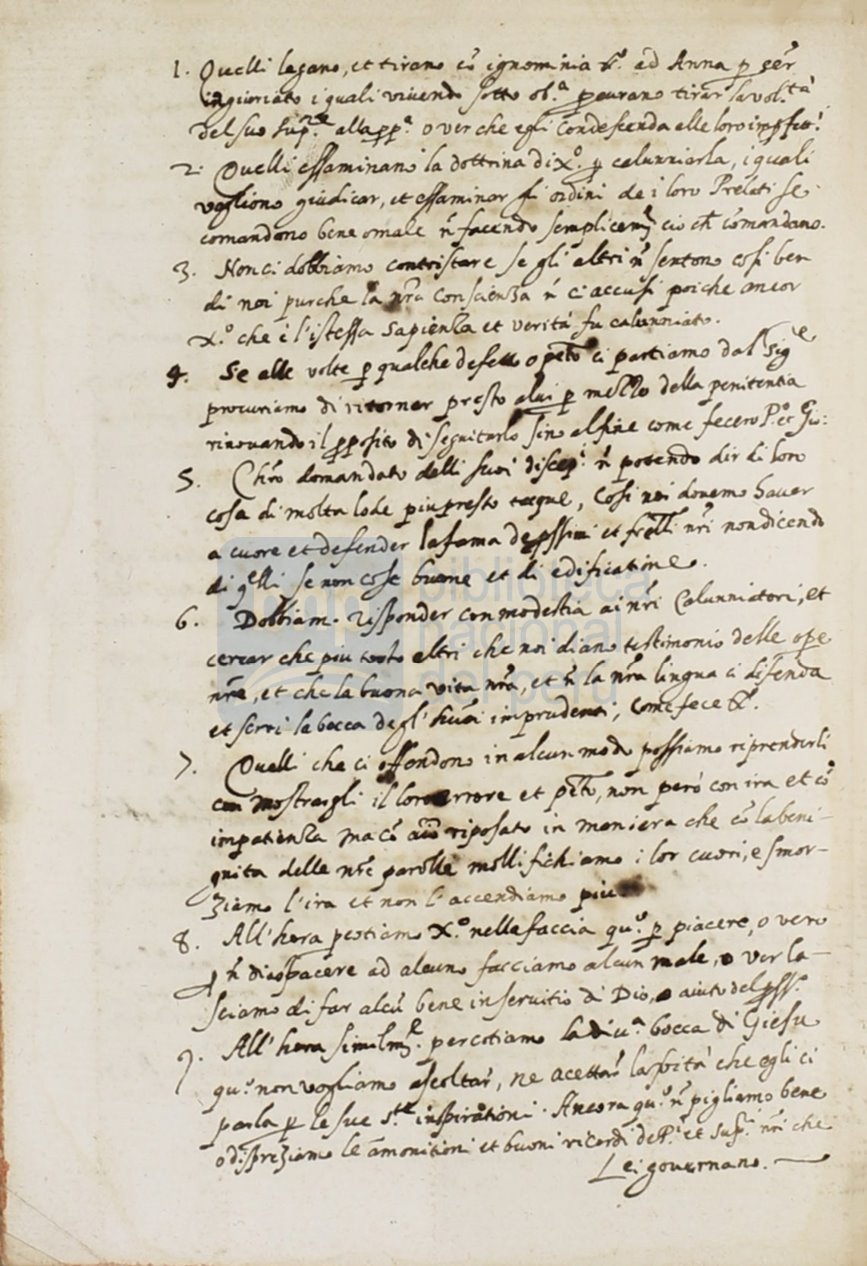 1. Quelli legano, et tirano cõ ignominia X.º ad Anna p esser
ingiuriato i quali vivendo sotto ob.ª pcurano tirar la vol.tà
del suo sup.re alla pp.ª o ver che egli condescenda alle loro impfett.
2. Quelli essaminano la dottrina di X.º p calunniarla, i quali
vogliono giudicar, et essaminar gli ordini de i loro Prelati se
comandono bene o male ñ facendo semplicem.te ciò ch comandano.
3. Non ci dobbiamo contristare se gli altri ñ sentono così ben
di noi purche la nr̃a conscienza ñ ci accusi poiche ancor
X.º che è l'istessa sapienza et verità fu calunniato.
4. Se alle volte p qualche defetto o petõ ci partiamo dal Sig.re
procuriamo di ritornar presto a lui p mezzo della penitentia
rinovando il pposito di seguitarlo sino al fine come fecero P.º et Gio:
5. Chr̃o domandato delli suoi discep.i ñ potendo dir di loro
cosa di molta lode piu presto tacque, Così noi dovemo haver
a cuore et defender la fama de pssimi et frẽlli nr̃i non dicendo
di q̃lli se non cose buone et di edificatine.
6. Dobbiam risponder con modestia ai nr̃i Calunniatori, et
cercar che piu tosto altri che noi diano testimonio delle ope
nr̃e, et che la buona vita nr̃a, et ñ la nr̃a lingua ci difenda
et serri la bocca degl' huõi imprudenti, come fece X.º
7. Quelli che ci offendono in alcun modo possiamo riprenderli
con mostrargli il loro errore et petõ, non però con ira et cõ
impatienza ma cõ aĩo riposato in maniera che cõ la beni-
gnita delle nr̃e parolle mollifichiamo i lor cuori, e smor-
ziamo l'ira et non l'accendiamo piu
8. All'hora pcotiamo X.º nella faccia qu.º p piacere, o vero
p ñ dispiacere ad alcuno facciamo alcun male, o ver la-
sciamo di far alcũ bene in servitio di Dio, o aiuto del pss.º
9. All'hora similm.te percotiamo la div.ª bocca di Giesu
qu.º non vogliamo ascoltar, ne acettar la verità che egli ci
parla p le sue s.te inspirationi. Ancora qu.º ñ pigliamo bene
o dispreziamo le amonitioni et buoni ricordi de P.i et sup.ri nr̃i che
Lei governano.